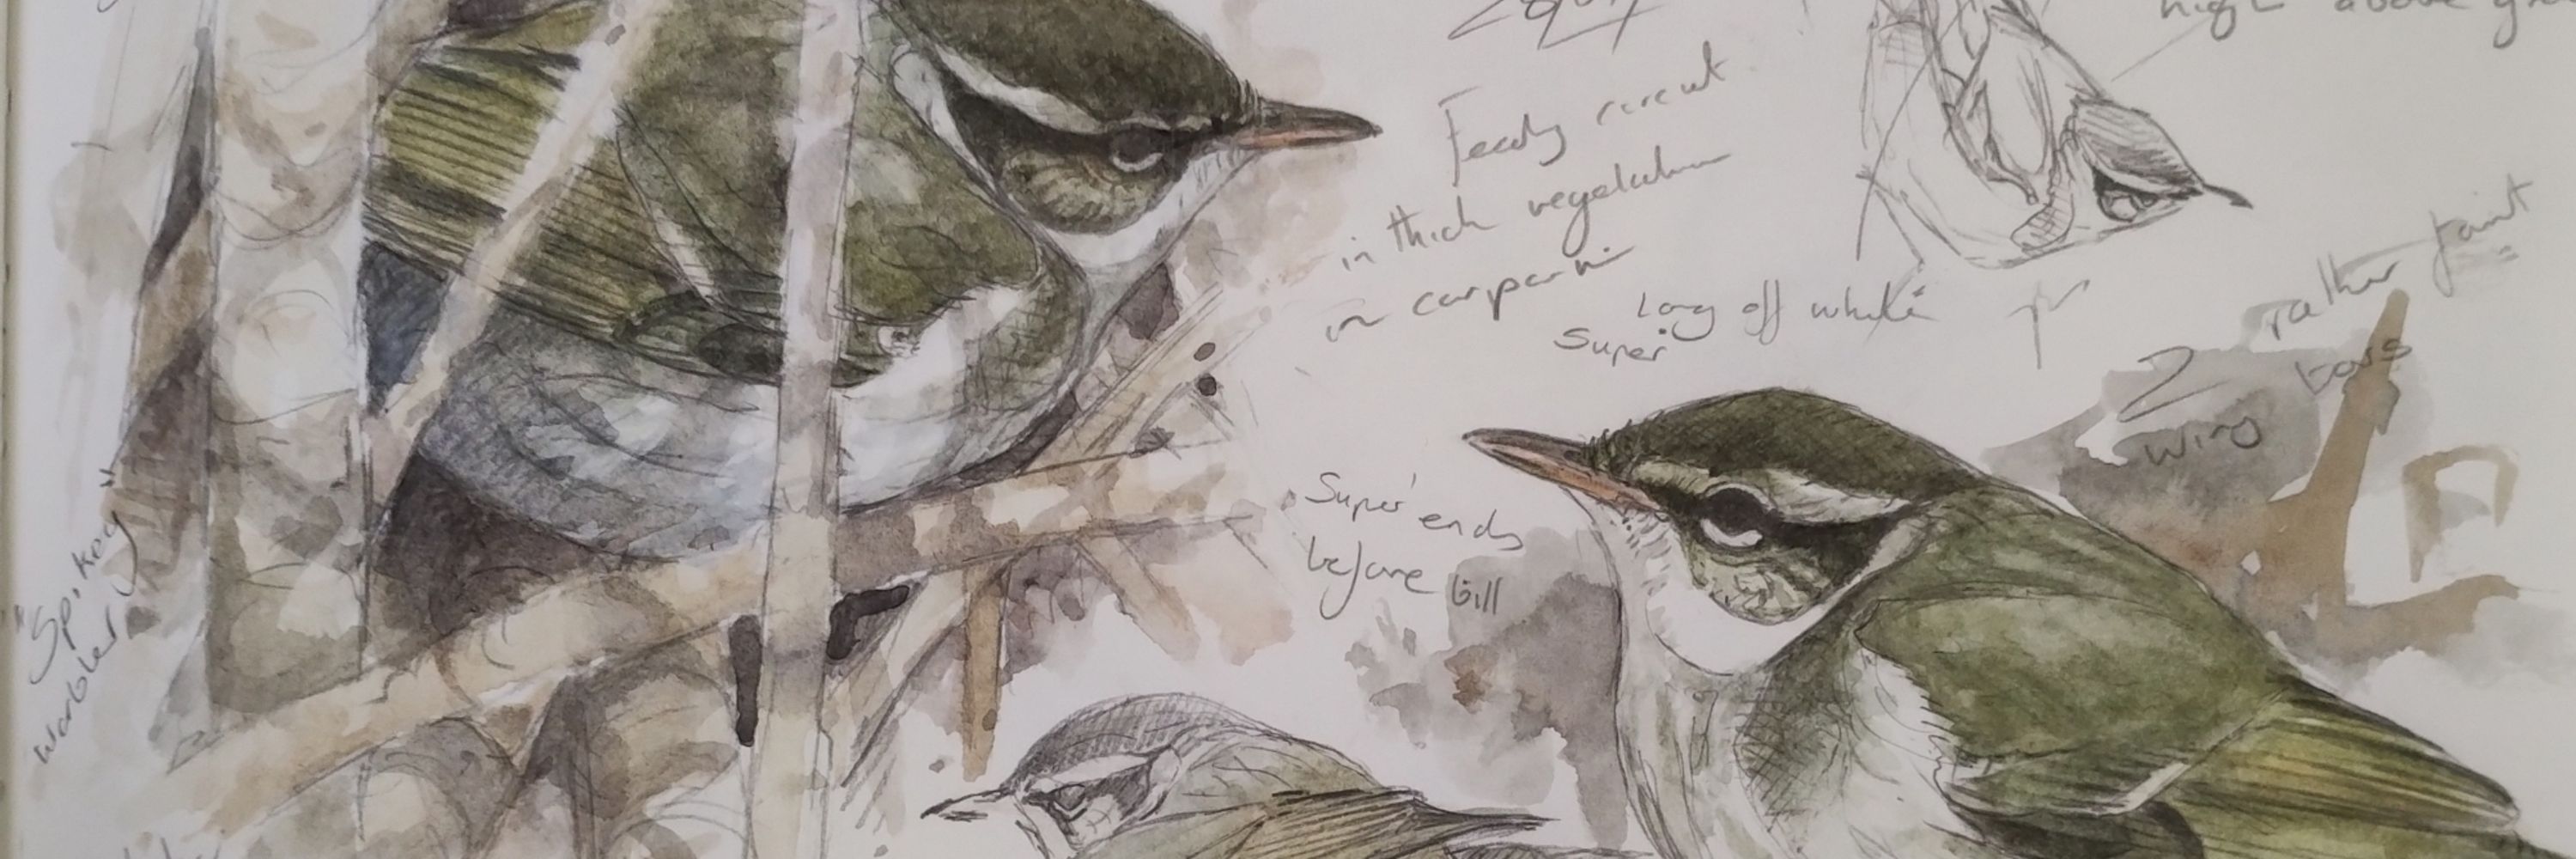 high above
Feedy circuit
in thick vegetation
in carpark
Long off white
Super'
rather faint
2
bars
wing
Super' ends
before bill
"Spikey"
warbler